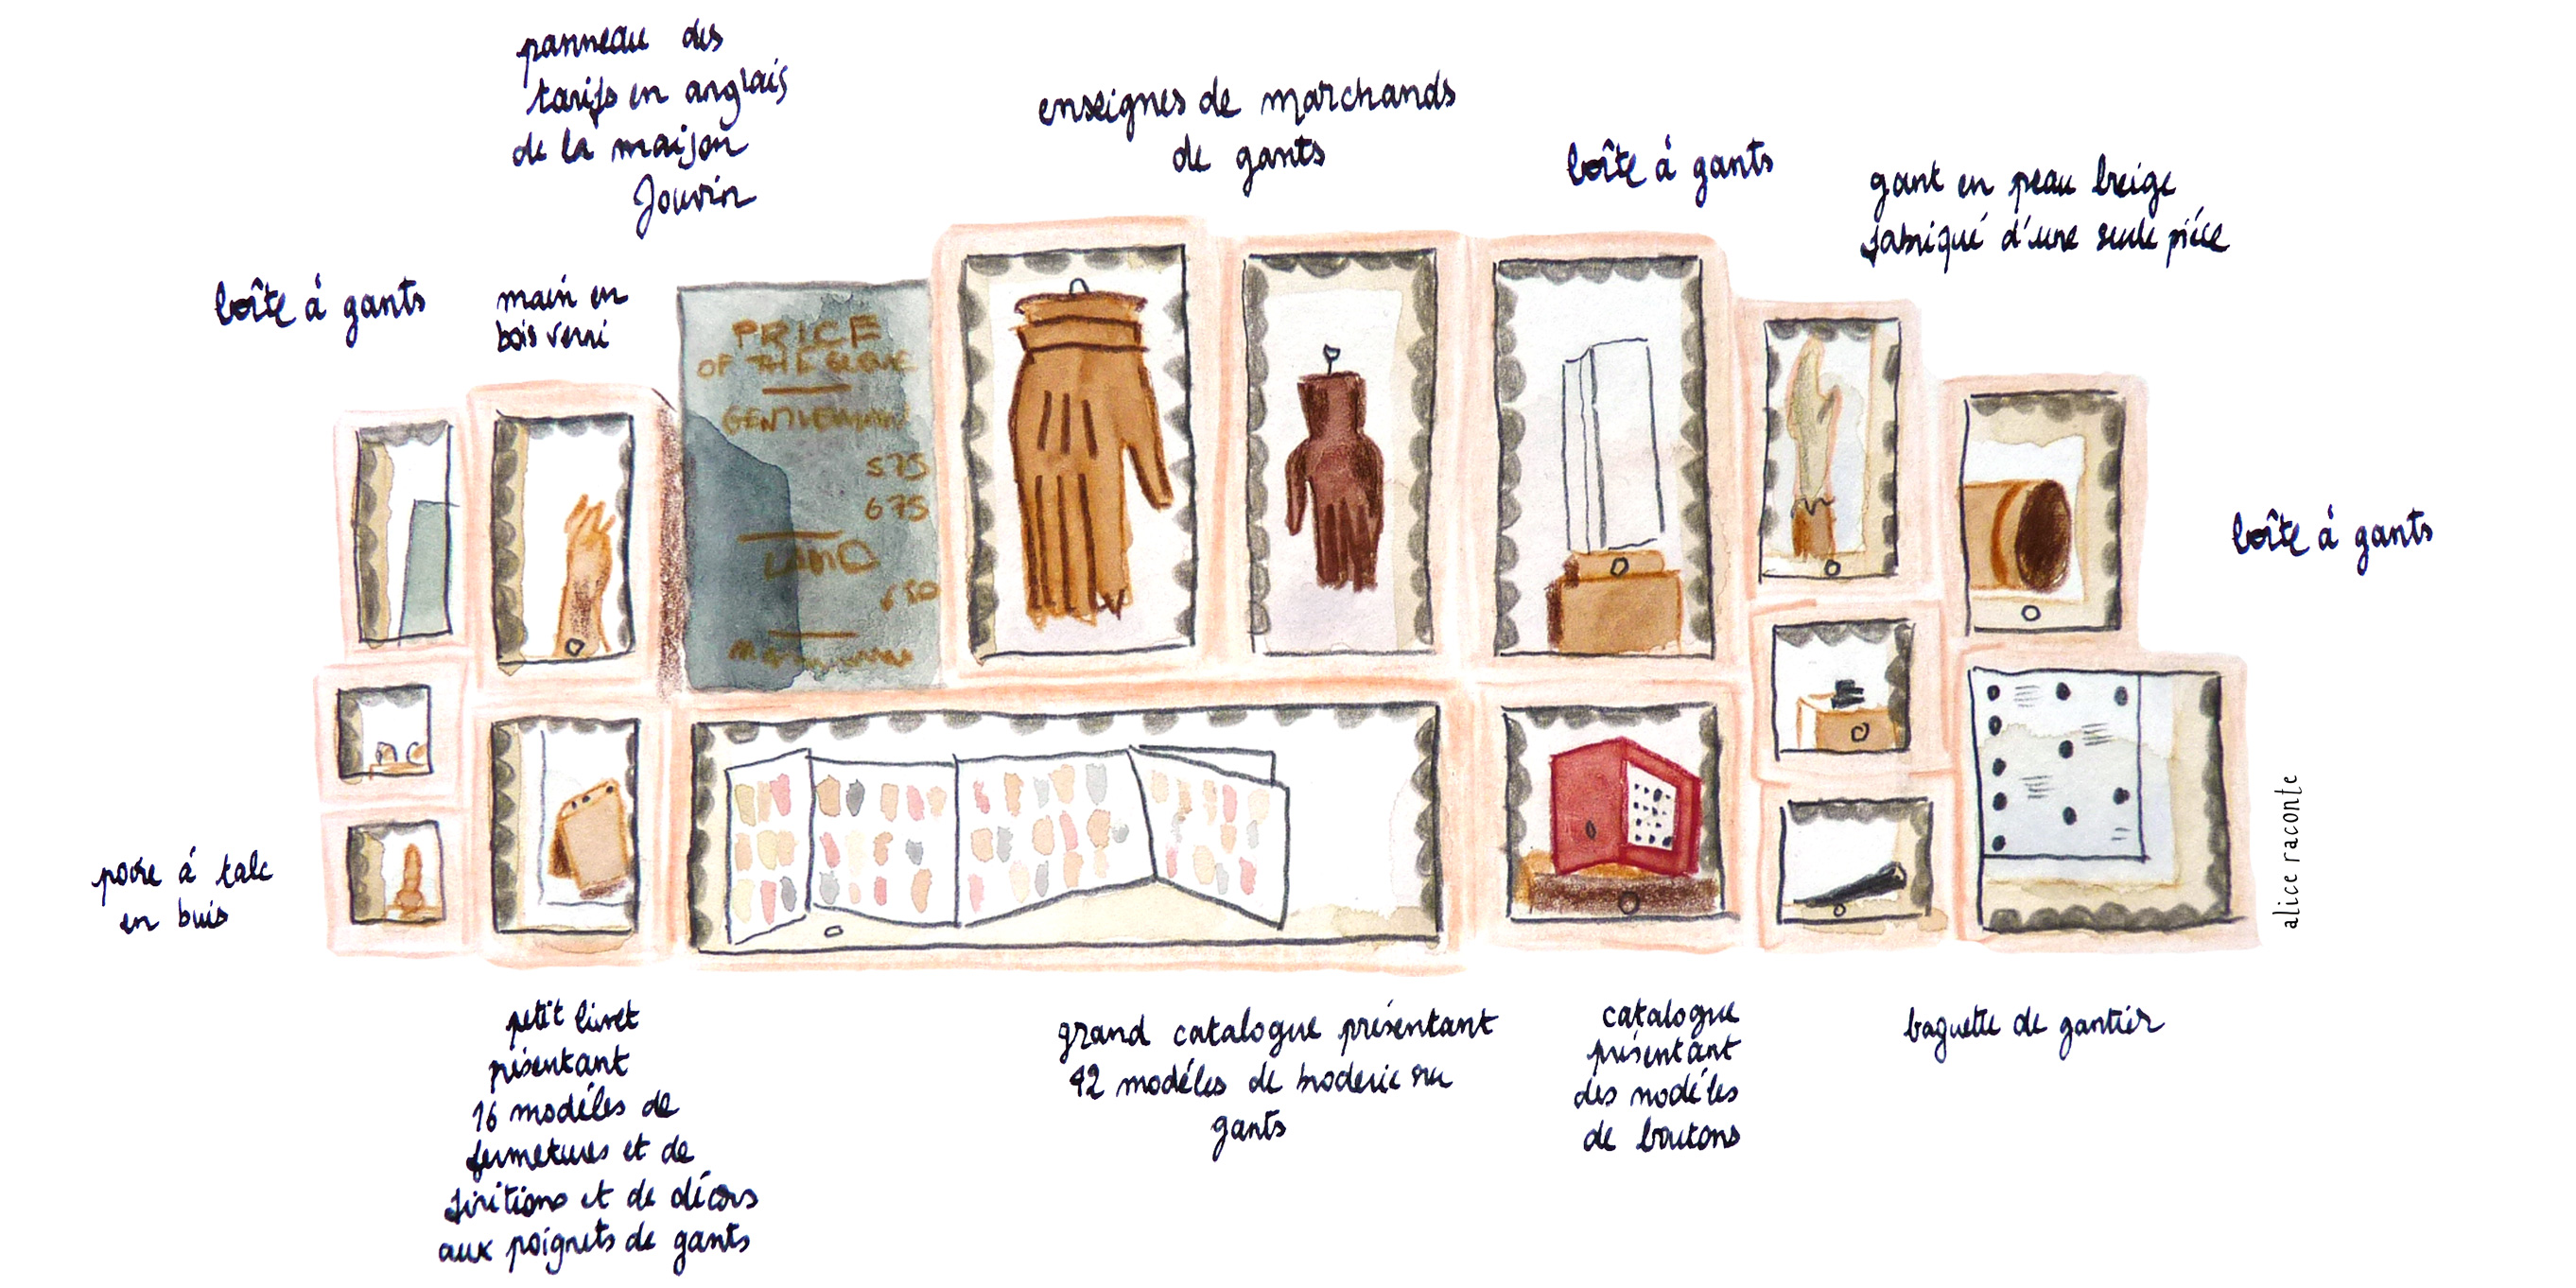 panneau des
tarifs en anglais
de la maison
Jouvin
enseignes de marchands
de gants
boîte à gants
gant en peau beige
fabriqué d'une seule piéce
boîte à gants
main en
bois verni
PRICE
OF THE GLOVE
GENTLEMAN
575
675
650
boîte à gants
poire à talc
en buis
alice raconte
petit livret
présentant
16 modéles de
fermetures et de
finitions et de décors
aux poignets de gants
grand catalogue présentant
42 modéles de broderie sur
gants
catalogue
présentant
des modéles
de boutons
baguette de gantier